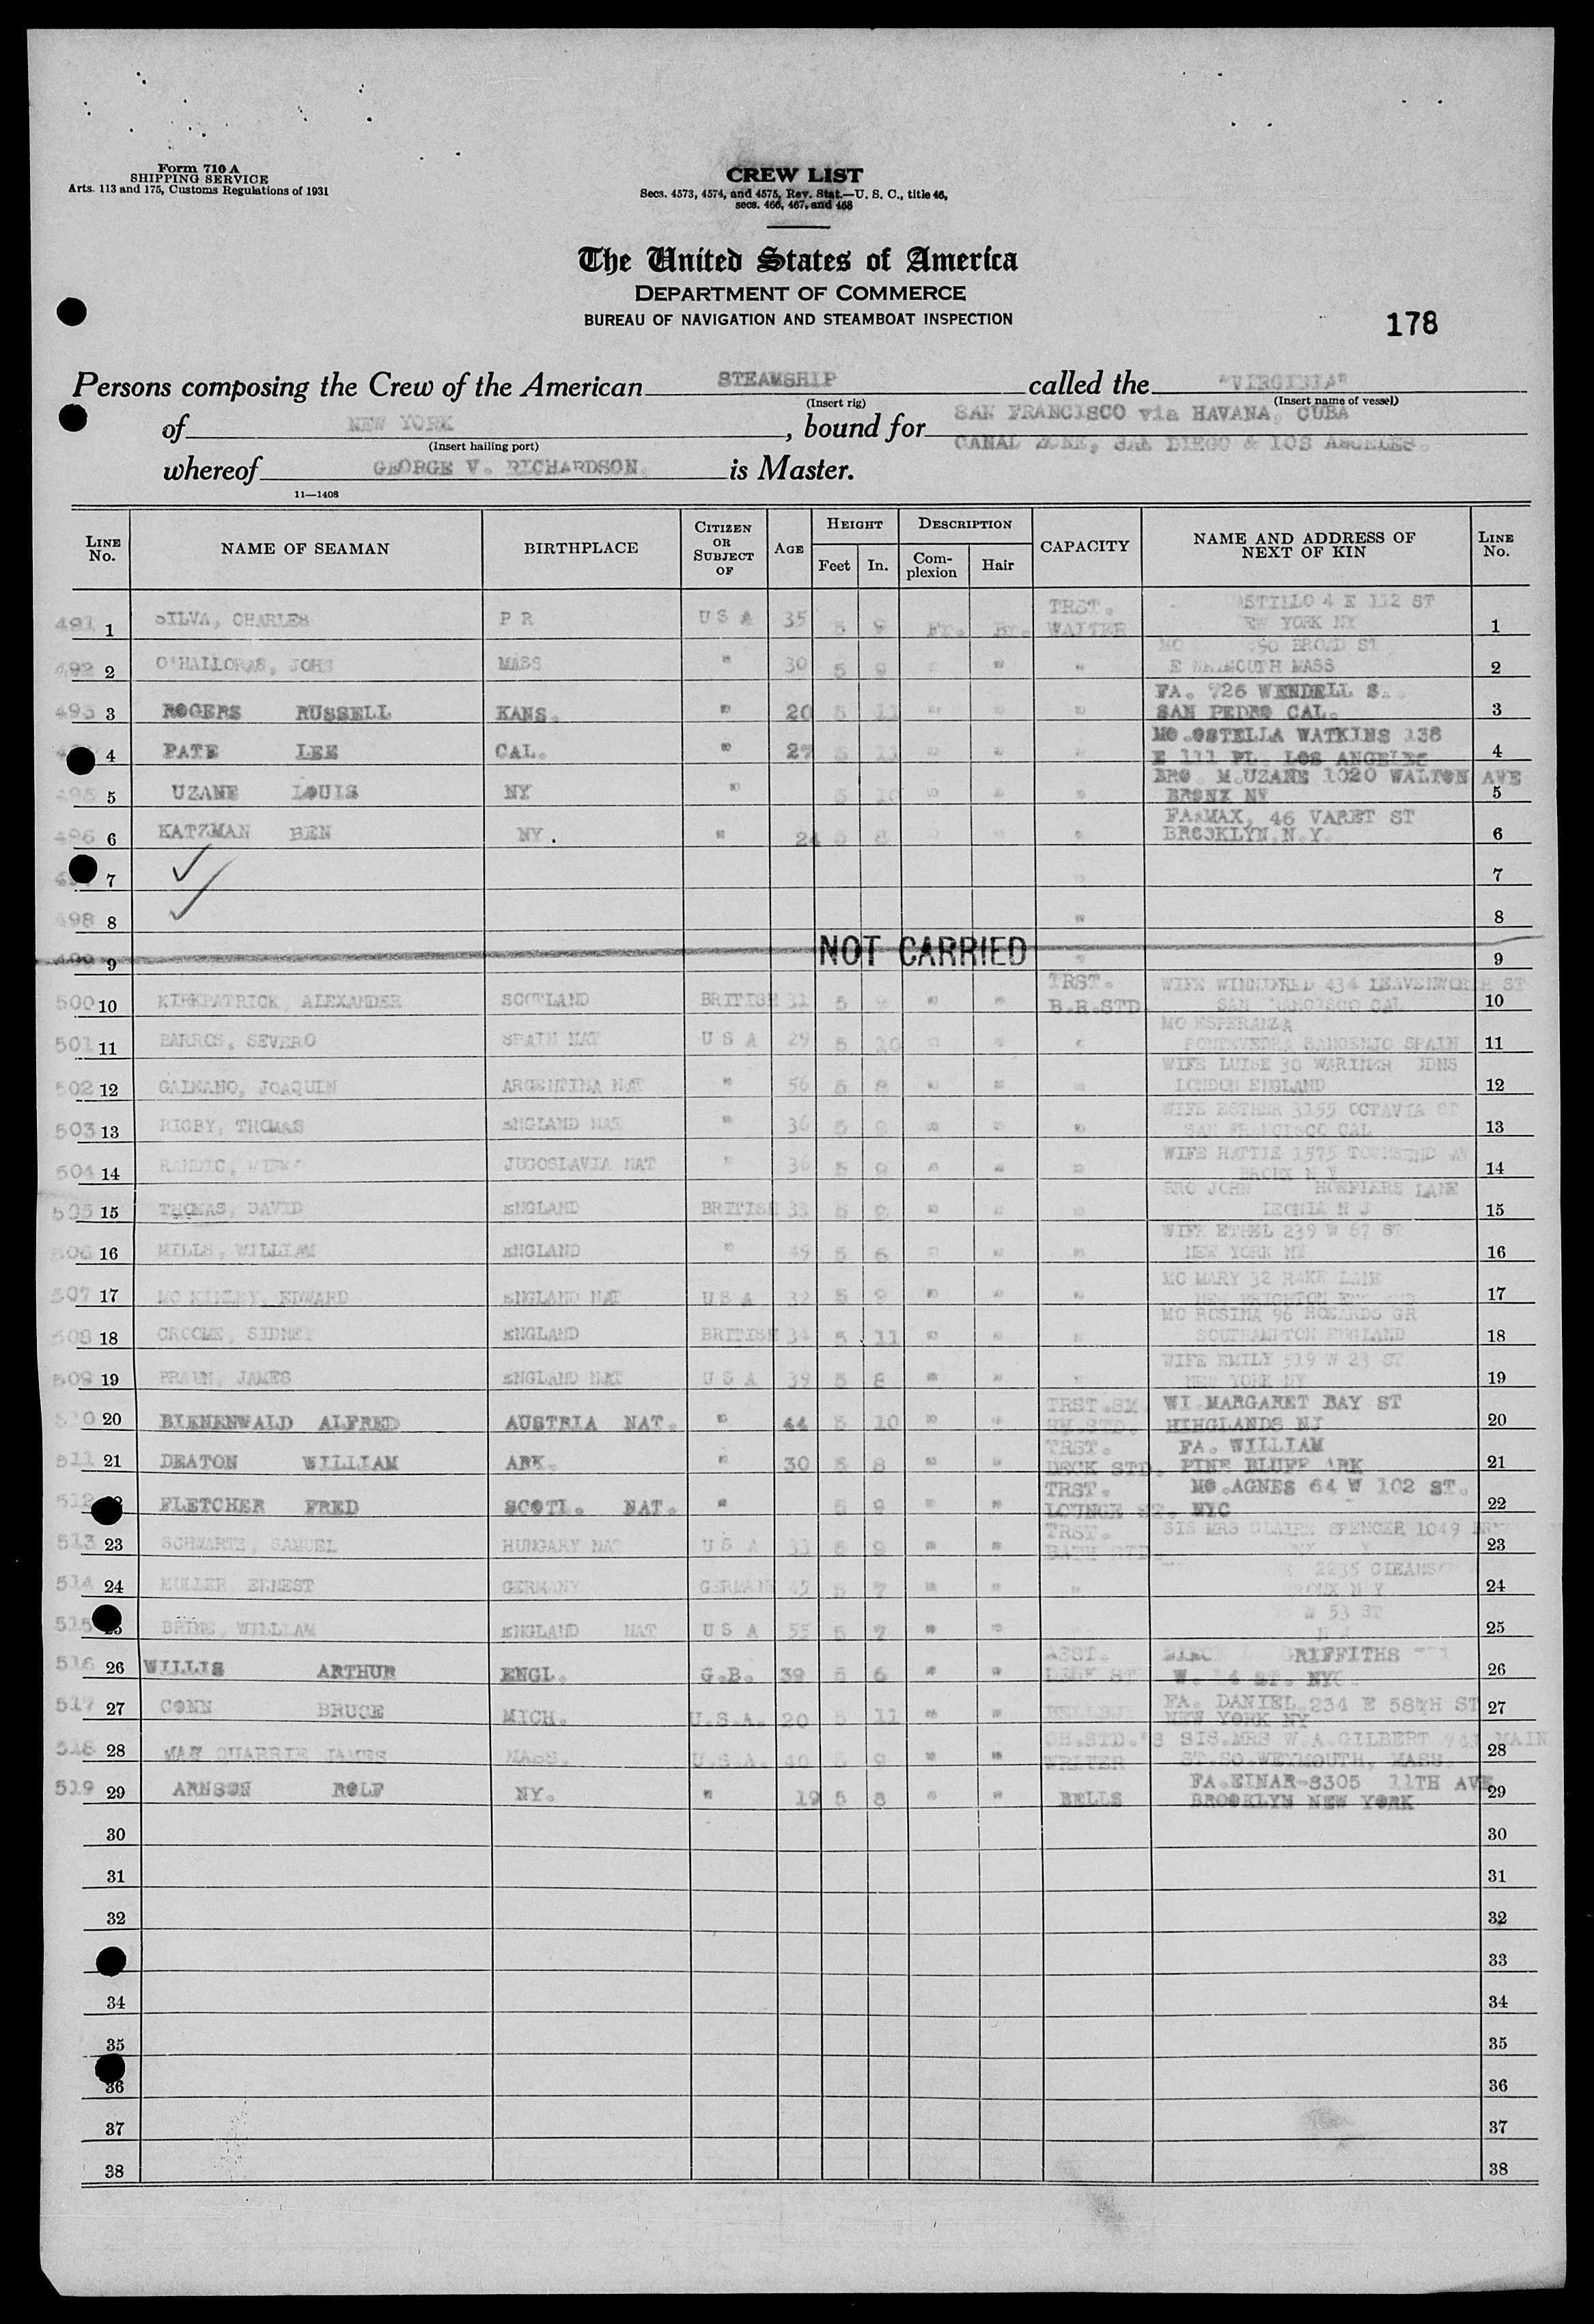 Form 710 A
SHIPPING SERVICE
Arts. 113 and 175, Customs Regulations of 1931
CREW LIST
Secs. 4573, 4574, and 4575, Rev. Stat.—U. S. C., title 46,
secs. 466, 467, and 468
The United States of America
DEPARTMENT OF COMMERCE
BUREAU OF NAVIGATION AND STEAMBOAT INSPECTION
178
Persons composing the Crew of the American STEAMSHIP called the "VIRGINIA"
(Insert rig) (Insert name of vessel)
of NEW YORK, bound for SAN FRANCISCO via HAVANA, CUBA
(Insert hailing port) CANAL ZONE, SAN DIEGO & LOS ANGELES.
whereof GEORGE V. RICHARDSON. is Master.
11—1408
LINE No. NAME OF SEAMAN BIRTHPLACE CITIZEN OR SUBJECT OF AGE HEIGHT Feet In. DESCRIPTION Complexion Hair CAPACITY NAME AND ADDRESS OF NEXT OF KIN LINE No.
491 1 SILVA, CHARLES P R U S A 35 5 9 Fr. Br. TRST. WAITER ASTILLO 4 E 112 ST EW YORK NY 1
492 2 O'HALLORAN, JOHN MASS " 30 5 9 " " MO 90 BROAD ST E WEYMOUTH MASS 2
493 3 ROGERS RUSSELL KANS. " 20 5 11 " " " FA. 726 WENDELL S. SAN PEDRO CAL. 3
4 PATE LEE CAL. " 27 5 11 " " " MO.OSTELLA WATKINS 138 E 111 PL. LOS ANGELES 4
495 5 UZANE LOUIS NY " 5 10 " " " BRO. M.UZANE 1020 WALTON AVE BRONX NY 5
496 6 KATZMAN BEN NY. " 24 5 8 " " " FA.MAX, 46 VARET ST BROOKLYN.N.Y. 6
7 " 7
498 8 " 8
9 NOT CARRIED " 9
500 10 KIRKPATRICK, ALEXANDER SCOTLAND BRITISH 31 5 " " TRST. B.R.STD WIFE WINNIDRED 434 LEAVENWORTH ST SAN FRANCISCO CAL 10
501 11 BARROS, SEVERO SPAIN NAT U S A 29 5 10 " " " MO ESPERANZA PONTEVEDRA SANGENJO SPAIN 11
502 12 GALMANO, JOAQUIN ARGENTINA NAT " 56 5 8 " " " WIFE LUISE 30 WARINER DNS LONDON ENGLAND 12
503 13 RIGBY, THOMAS ENGLAND NAT " 36 5 " " " WIFE ESTHER 3155 OCTAVIA ST SAN FRANCISCO CAL 13
504 14 RANDIC, JUGOSLAVIA NAT " 36 5 9 " " " WIFE HATTIE 1575 TOWNSEND AV BRONX N Y 14
505 15 THOMAS, DAVID ENGLAND BRITISH 33 5 " " " BRO JOHN HOEFLERS LANE LEONIA N J 15
506 16 MILLS, WILLIAM ENGLAND " 45 5 6 " " " WIFE ETHEL 239 W 67 ST NEW YORK NY 16
507 17 MC KINLEY, EDWARD ENGLAND NAT U S A 32 5 9 " " " MO MARY 32 RAKE LANE NEW BRIGHTON ENGLAND 17
508 18 CROOME, SIDNEY ENGLAND BRITISH 34 5 11 " " " MO ROSINA 96 HOWARDS GR SOUTHAMPTON ENGLAND 18
509 19 BRAUN, JAMES ENGLAND NAT U S A 39 5 8 " " " WIFE EMILY 519 W 23 ST NEW YORK NY 19
510 20 BIENENWALD ALFRED AUSTRIA NAT. " 44 5 10 " " TRST.SM. RM.STD. WI.MARGARET BAY ST HIHGLANDS NJ 20
511 21 DEATON WILLIAM ARK. " 30 5 8 " " TRST. DECK STD. FA. WILLIAM PINE BLUFF ARK 21
512 FLETCHER FRED SCOTL. NAT. " 5 9 " " TRST. LOUNGE ST. MO.AGNES 64 W 102 ST. NYC 22
513 23 SCHWARTZ, SAMUEL HUNGARY NAT U S A 33 5 9 " " TRST. BATH STD. SIS MRS CLAIRE SPENCER 1049 23
514 24 MULLER ERNEST GERMANY GERMAN 45 5 7 " " " 2235 BRONX N Y 24
515 BRINE, WILLIAM ENGLAND NAT U S A 55 5 7 " " W 53 ST 25
516 26 WILLIS ARTHUR ENGL. G.B. 39 5 6 " " ASST. DECK ST GRIFFITHS W. ST. NYC 26
517 27 CONN BRUCE MICH. U.S.A. 20 5 11 " " BELLBOY FA. DANIEL.234 E 58TH ST NEW YORK NY 27
518 28 MAC QUARRIE JAMES MASS. U.S.A. 40 5 9 " " CH.STD.'S WRITER SIS.MRS W.A.GILBERT MAIN ST.SO.WEYMOUTH, MASS. 28
519 29 ARNSON ROLF NY. " 19 5 8 " " BELLS FA.EINAR-8305 11TH AVE BROOKLYN NEW YORK 29
30 30
31 31
32 32
33
34 34
35 35
36 36
37 37
38 38